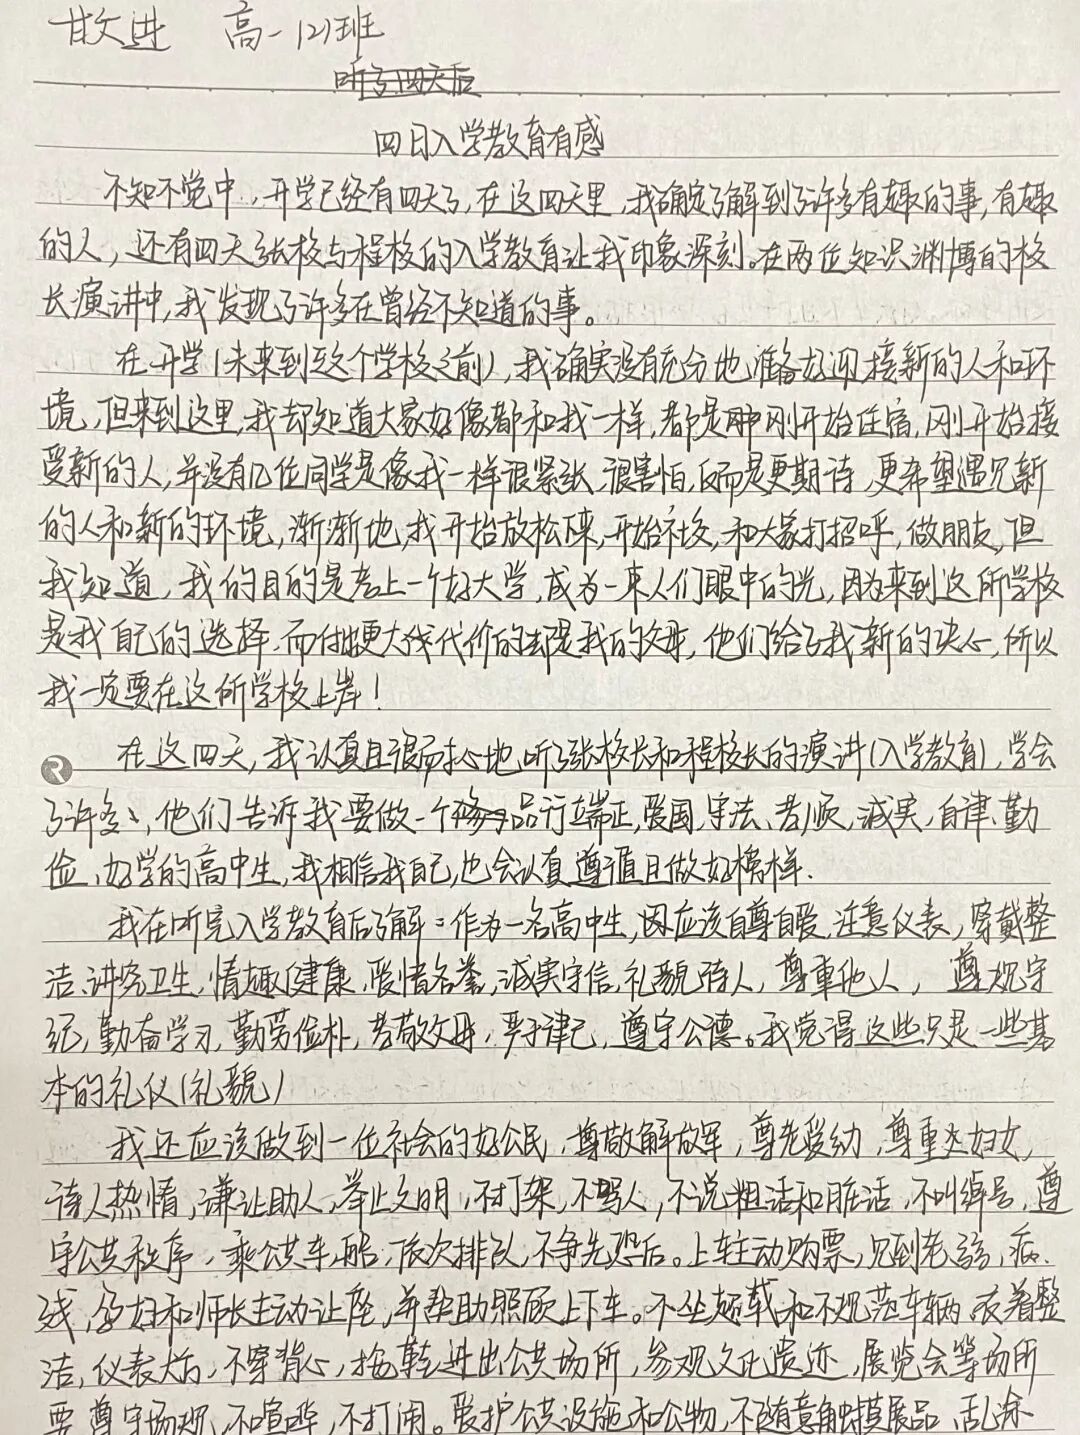 高一(2)班
听了四天后
四日入学教育有感
不知不觉中,开学已经有四天了,在这四天里,我确定了解到了许多有趣的事,有趣
的人,还有四天张校与程校的入学教育让我印象深刻。在两位知识渊博的校
长演讲中,我发现了许多在曾经不知道的事。
在开学(未来到这个学校之前),我确实没有充分地准备好迎接新的人和环
境,但来到这里,我却知道大家好像都和我一样,都是刚刚开始住宿,刚开始接
受新的人,并没有几位同学是像我一样很紧张,很害怕,反而是更期待,更希望遇见新
的人和新的环境,渐渐地,我开始放松下来,开始社交,和大家打招呼,做朋友,但
我知道,我的目的是考上一个好大学,成为一束人们眼中的光,因为来到这所学校
是我自己的选择,而付出更大代价的却是我的父母,他们给了我新的决心,所以
我一定要在这所学校上岸!
在这四天,我认真且很耐心地听了张校长和程校长的演讲(入学教育),学会
了许多、他们告诉我要做一个品行端正,爱国,守法、孝顺,诚实,自律、勤
俭、好学的高中生,我相信我自己,也会认真遵循且做好榜样.
我在听完入学教育后了解:作为一名高中生,应该自尊自爱,注意仪表,穿戴整
洁,讲究卫生,情趣健康,爱惜名誉,诚实守信,礼貌待人,尊重他人,遵规守
纪,勤奋学习,勤劳俭朴,孝敬父母,严于律己,遵守公德。我觉得这些只是一些基
本的礼仪(礼貌)
我还应该做到一位社会的好公民,尊敬解放军,尊老爱幼,尊重妇女,
待人热情,谦让助人,举止文明,不打架,不骂人,不说粗话和脏话,不叫绰号,遵
守公共秩序,乘公共车,船,依次排队,不争先恐后。上车主动购票,见到老弱,病、
残,孕妇和师长主动让座,并帮助照顾上下车。不坐超载和不规范车辆,衣着整
洁,仪表大方,不穿背心,拖鞋进出公共场所,参观文化遗迹,展览会等场所
要遵守场规,不喧哗,不打闹。爱护公共设施和公物,不随意触摸展品、乱涂